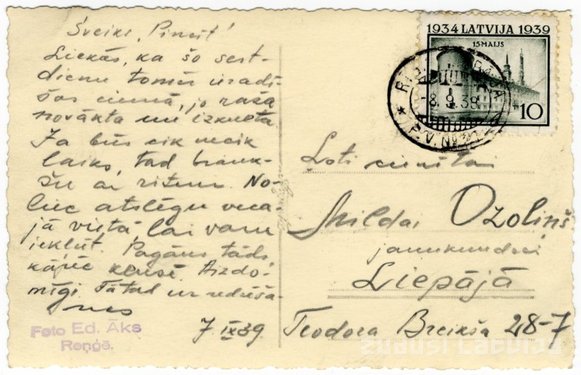 Sveiks, Pineit!
Liekas, ka šo sest-
dienu tomēr izradī-
šos ciemā, jo raža
novākta un izkulta
Ja būs cik necik
laiks, tad brauk-
šu ar riteni. No-
liec atslēgu vecā
jā vietā lai varu
iekļūt. Pagāns tāds
kāpēc klusē. Aizdo-
mīgi. Tātad uz redzēša-
nos
7 IX 39
Foto Ed. Āks
Reņģē.
1934 LATVIJA 1939
15 MAIJS
10
RĪGA
-8.9.39
Ļoti cienītai
Mildai Ozoliņš
jaunkundzei
Liepājā
Teodora Breikša 28-7
ZUDUSĪ LATVIJA